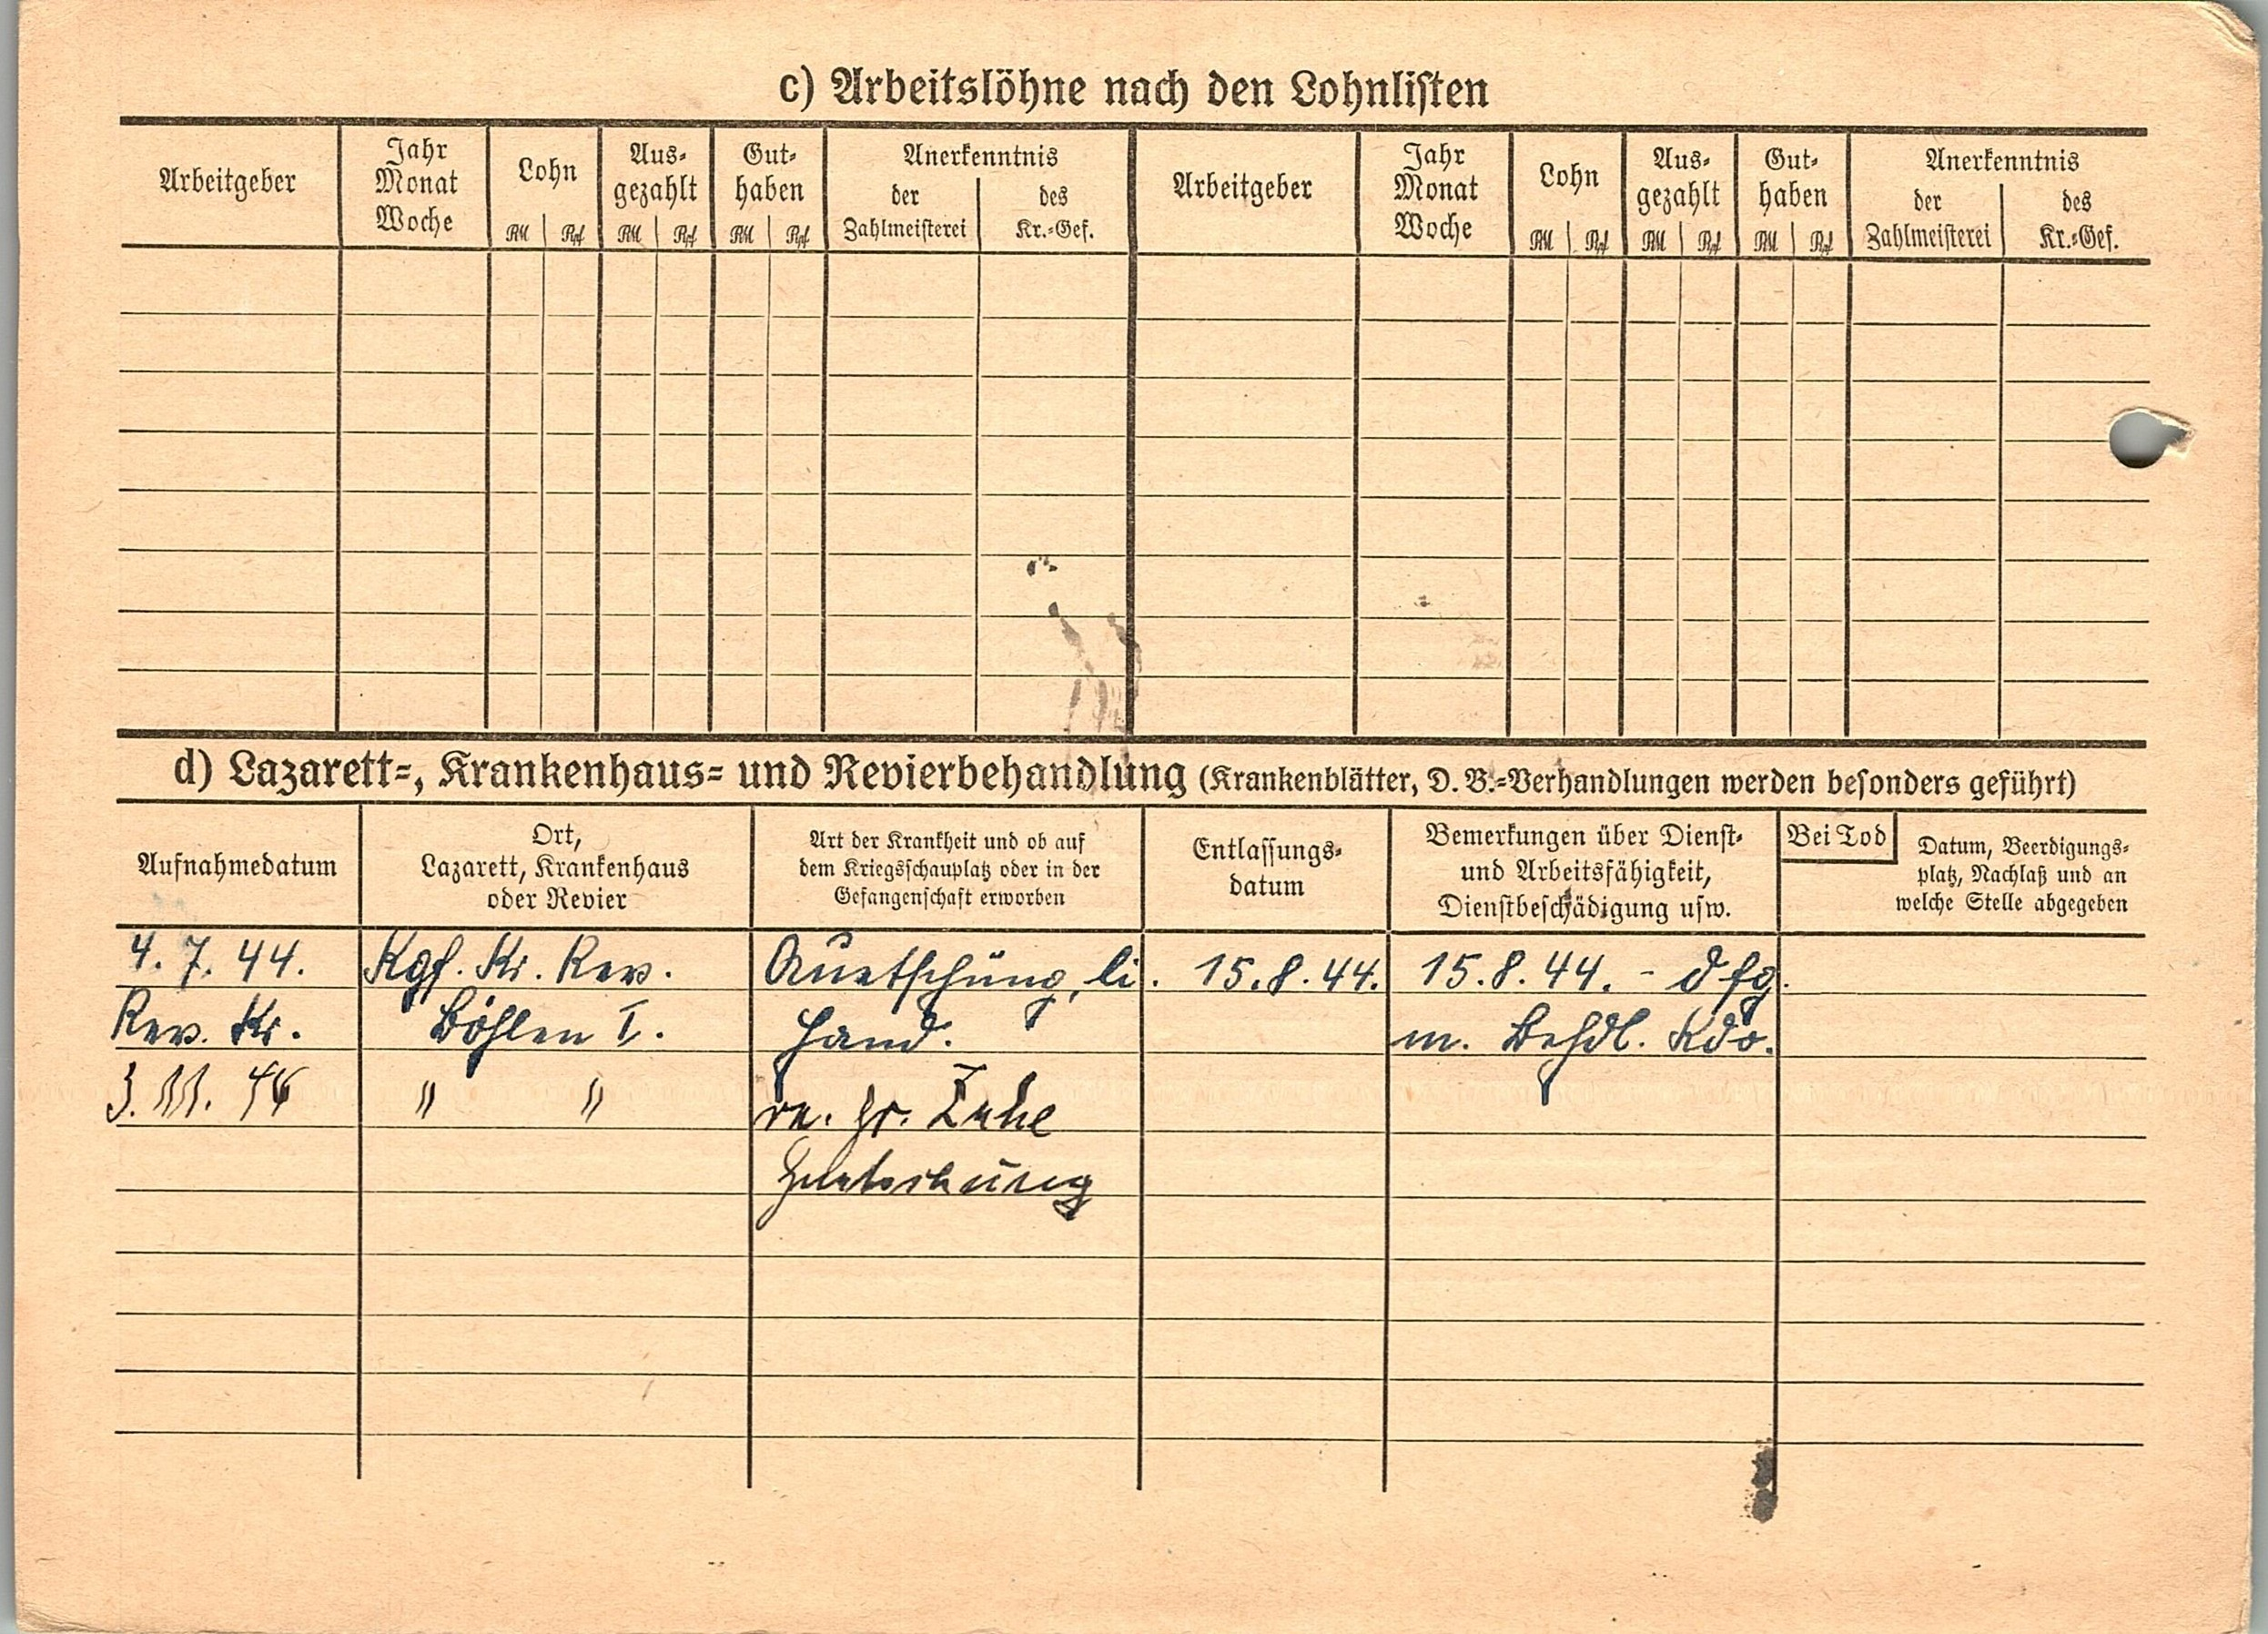 c) Arbeitslöhne nach den Lohnlisten
Arbeitgeber
Jahr
Monat
Woche
Lohn
RM Rpf
Aus-
gezahlt
RM Rpf
Gut-
haben
RM Rpf
Anerkenntnis
der
Zahlmeisterei
des
Kr.-Gef.
Arbeitgeber
Jahr
Monat
Woche
Lohn
RM Rpf
Aus-
gezahlt
RM Rpf
Gut-
haben
RM Rpf
Anerkenntnis
der
Zahlmeisterei
des
Kr.-Gef.
d) Lazarett-, Krankenhaus- und Revierbehandlung (Krankenblätter, D. B.-Verhandlungen werden besonders geführt)
Aufnahmedatum
Ort,
Lazarett, Krankenhaus
oder Revier
Art der Krankheit und ob auf
dem Kriegsschauplatz oder in der
Gefangenschaft erworben
Entlassungs-
datum
Bemerkungen über Dienst-
und Arbeitsfähigkeit,
Dienstbeschädigung usw.
Bei Tod
Datum, Beerdigungs-
platz, Nachlaß und an
welche Stelle abgegeben
4. 7. 44. Kgf. Kr. Rev. Quetschung, li. 15. 8. 44. 15. 8. 44. - dfg.
Rev. Kr. Böhlen I. Hand. m. Behdl. Kdo.
3. 11. 44 " " re. gr. Zehe
Quetschung